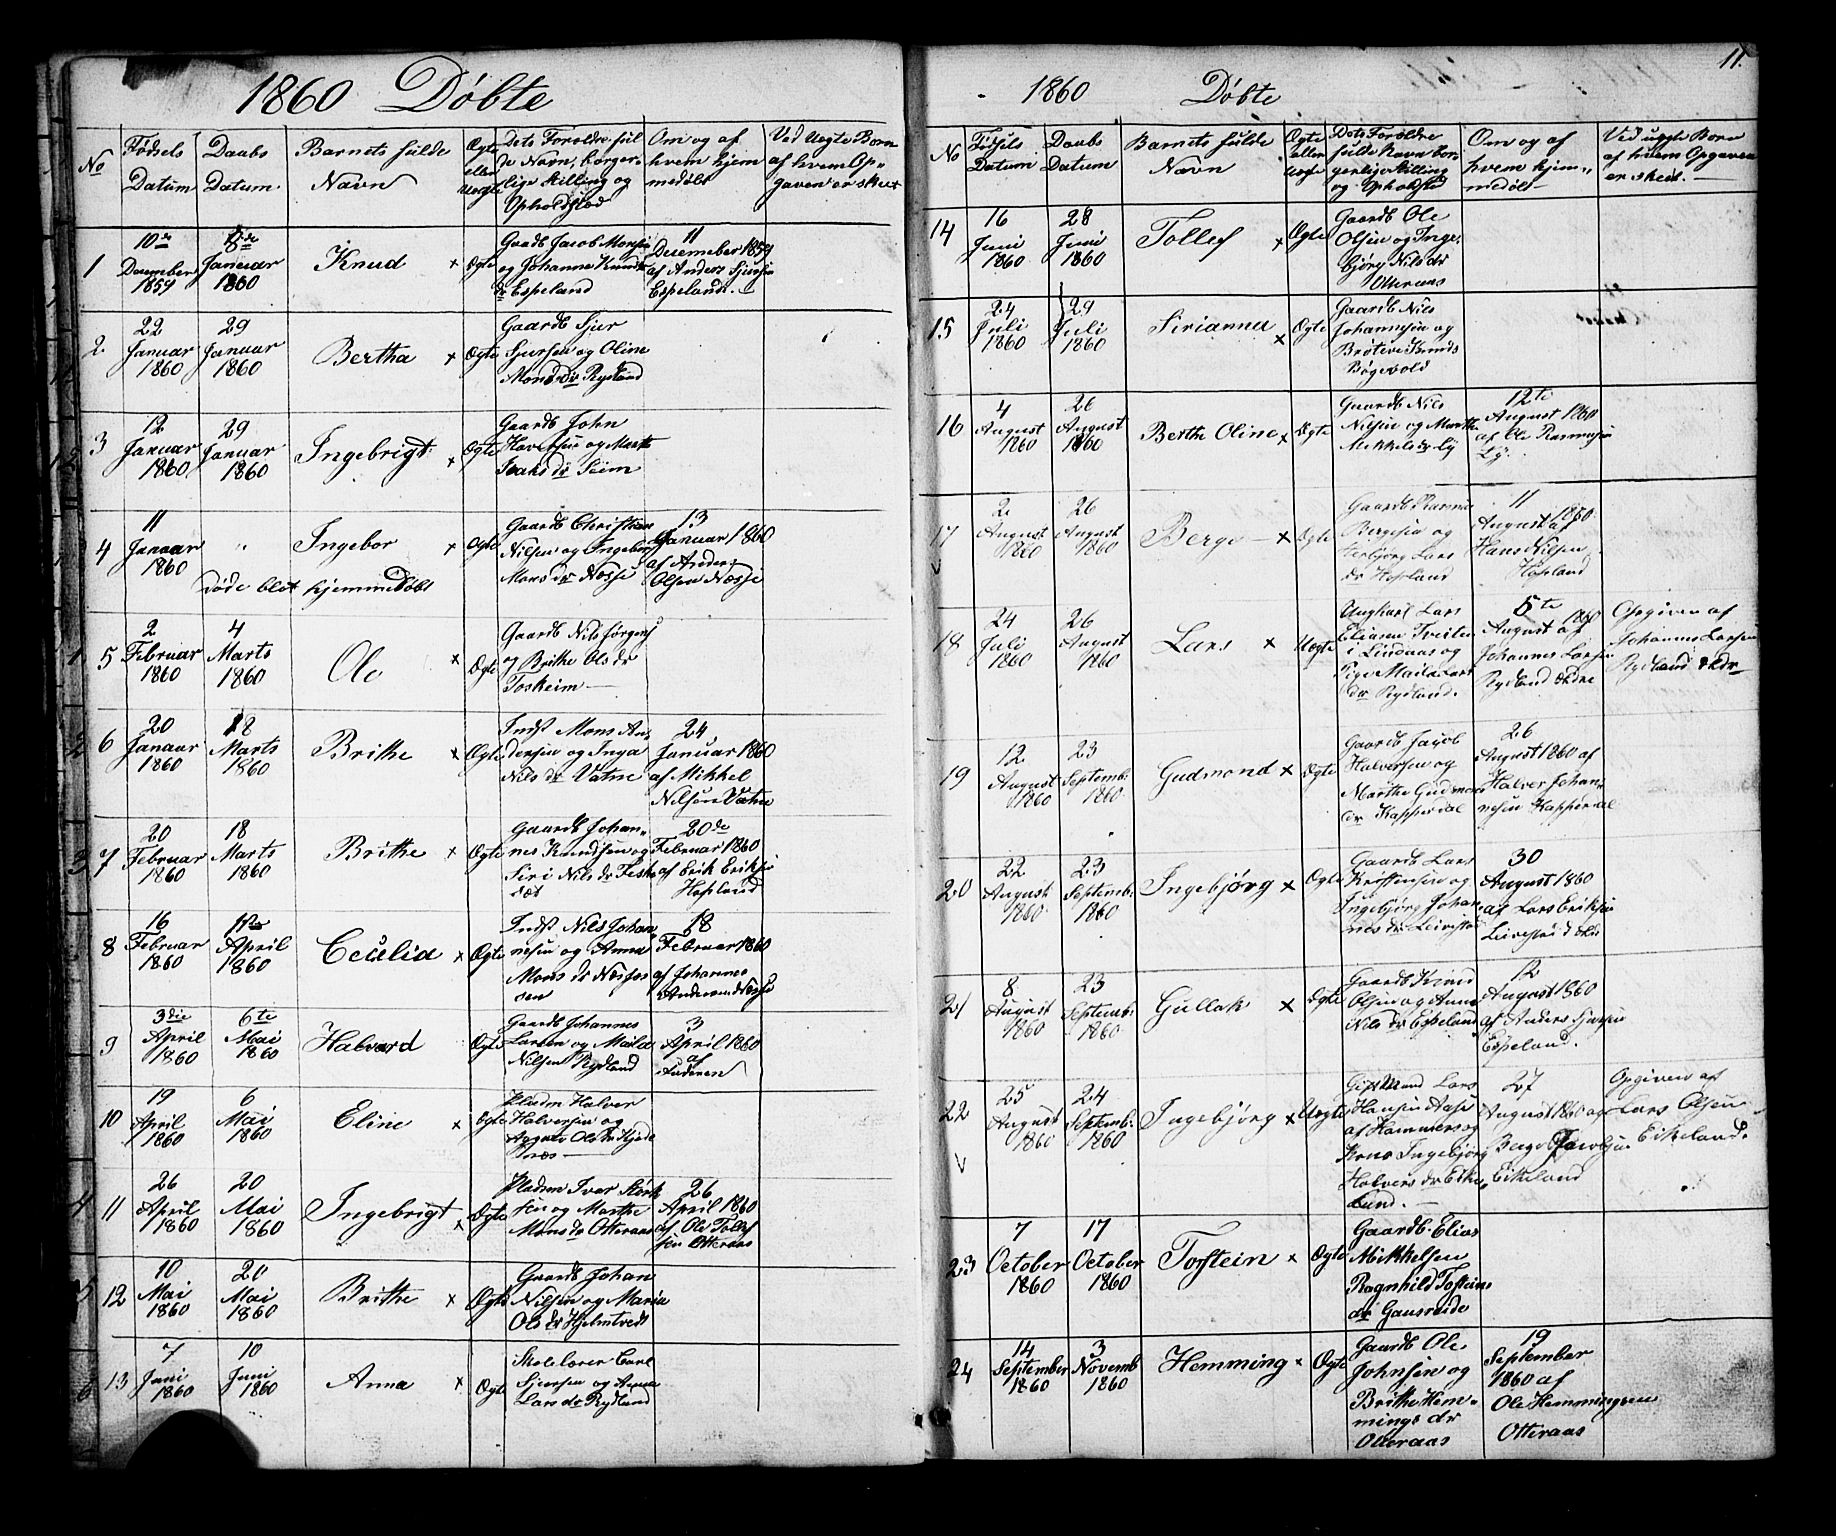 1860 Döbte
No
Fødsels Datum
Daabs Datum
Barnets fulde Navn
Ægte eller Uægte
Dets Foreldre fulde Navn, borgerlige stilling og Opholdsted
Om og af hvem hjemmedöbt
Ved Uegte Born af hvem Opgaven er skeet
1
10de December 1859
8de Januar 1860
Knud
×
Ægte
Gaardb Jacob Monsen og Johanne Knuds dr Espeland
11 Decemeber 1859 af Anders Sjursen Espeland.
2
22 Januar 1860
29 Januar 1860
Bertha
×
Ægte
Gaardb Sjur Sjursen og Oline Mons dr Rydland
3
12 Januar 1860
29 Januar 1860
Ingebrigt
×
Ægte
Gaardb John Haversen og Marte Isaks dr Seim
4
11 Januar 1860
"
Ingebor
×
Ægte
Gaardb Christian Nilsen og Ingebor Mons dr Næsse
13 Januar 1860 af Anders Olsen Næsse
Døde blot hjemmedøbt
5
2 Februar 1860
4 Marts 1860
Ole
×
Ægte
Gaardb Nils Jørgens Brithe Ols dr Toskeim
6
20 Januar 1860
18 Marts 1860
Brithe
×
Ægte
Indst Mons Andersen og Inga Nils dr Vatne
24 Januar 1860 af Mikkel Nilsen Vatne
7
20 Februar 1860
18 Marts 1860
Brithe
×
Ægte
Gaardb Johannes Knudsen og Siri Nils dr
20de Februar 1860 af Erik Eriksen Hopland
8
16 Februar 1860
1ste April 1860
Cecilia
×
Ægte
Indst Nils Johannesen og Anna Mons dr
18 Februar 1860 af Johannes Andersen Næsse
9
3die April 1860
6te Mai 1860
Halvard
Ægte
Gaardb Johannes Larsen og Maila Nilsen Rydland
3 April 1860 af
10
19 April 1860
6 Mai 1860
Eline
×
Ægte
Pladsm Halver Halversen og Agnes Ols dr
11
26 April 1860
20 Mai 1860
Ingebrigt
×
Ægte
Pladsm Ivar og Marthe Mons dr Otteraas
26 April 1860 af Ole Tollefsen Otteraas
12
10 Mai 1860
20 Mai 1860
Brithe
×
Ægte
Gaardb Johan Nilsen og Maria Ols dr Hjelmtvedt
13
7 Juni 1860
10 Juni 1860
Anna
×
Ægte
Skolelærer Carl Sjursen og Anna Lars dr Rydland
11.
1860 Döbte
No
Fødsels Datum
Daabs Datum
Barnets fulde Navn
Ægte eller Uægte
Dets Foreldre fulde Navn borgerlige Stilling og Opholdsted
Om og af hvem hjemmedöbt
Ved uægte Born af hvem Opgaven er skeet.
14
16 Juni 1860
28 Juni 1860
Tollef
×
Ægte
Gaardb Ole Olsen og Ingebjörg Nils dr Otteraas
15
24 Juli 1860
29 Juli 1860
Sirianna
×
Ægte
Gaardb Nils Johannesen og Bröteve Knuds Bögevold
16
4 August 1860
26 August 1860
Berthe Oline
×
Ægte
Gaardb Nils Nilsen og Marthe Mikkels dr Ly
12te August 1860 af Ole Rasmusen Ly.
17
2 August 1860
26 August 1860
Berge
×
Ægte
Gaardb Rasmus Bergesen og Lars dr Hopland
11 August 1860 af Hans Nilsen Hopland
18
24 Juli 1860
26 August 1860
Lars
×
Uægte
Ungkarl Lars Eliasen Tveiten i Lindaas og Pige Maila Lars dr Rydland.
5te August 1860 af Johannes Larsen Rydland
Opgiven af Johannes Larsen Rydland
19
12 August 1860
23 Septemb. 1860
Gudmond
×
Ægte
Gaardb Jacob Halversen og Marthe Gudmons dr Kapperdal
26 August 1860 af Halver Johannesen Kapperdal
20
22 August 1860
23 Septemb. 1860
Ingebjørg
×
Ægte
Gaardb Lars Kristensen og Ingebjørg Johannes dr
30 August 1860 af Lars Eriksen
21
8 August 1860
23 Septemb. 1860
Gullak
×
Ægte
Gaardb Knud Olsen og Anna Nils dr Espeland
12 August 1860 af Anders Sjursen Espeland.
22
25 August 1860
24 Septemb. 1860
Ingebjørg
×
Uægte
Gift Mand Lars Hansen Aase af Hammer og Kone Ingebjörg Halvers dr Eikeland.
27 August 1860 af Berge Jacobsen Eikeland
Opgiven af Lars Olsen Eikeland.
23
7 October 1860
17 October 1860
Torstein
×
Ægte
Gaardb. Elias Mikkelsen Ragnhild Tosteins dr Gausreide
24
14 September 1860
3 Novemb 1860
Hemming
×
Ægte
Gaardb Ole Johnsen og Brithe Hemmings dr Otteraas
19 September 1860 af Ole Hemmingsen Otteraas